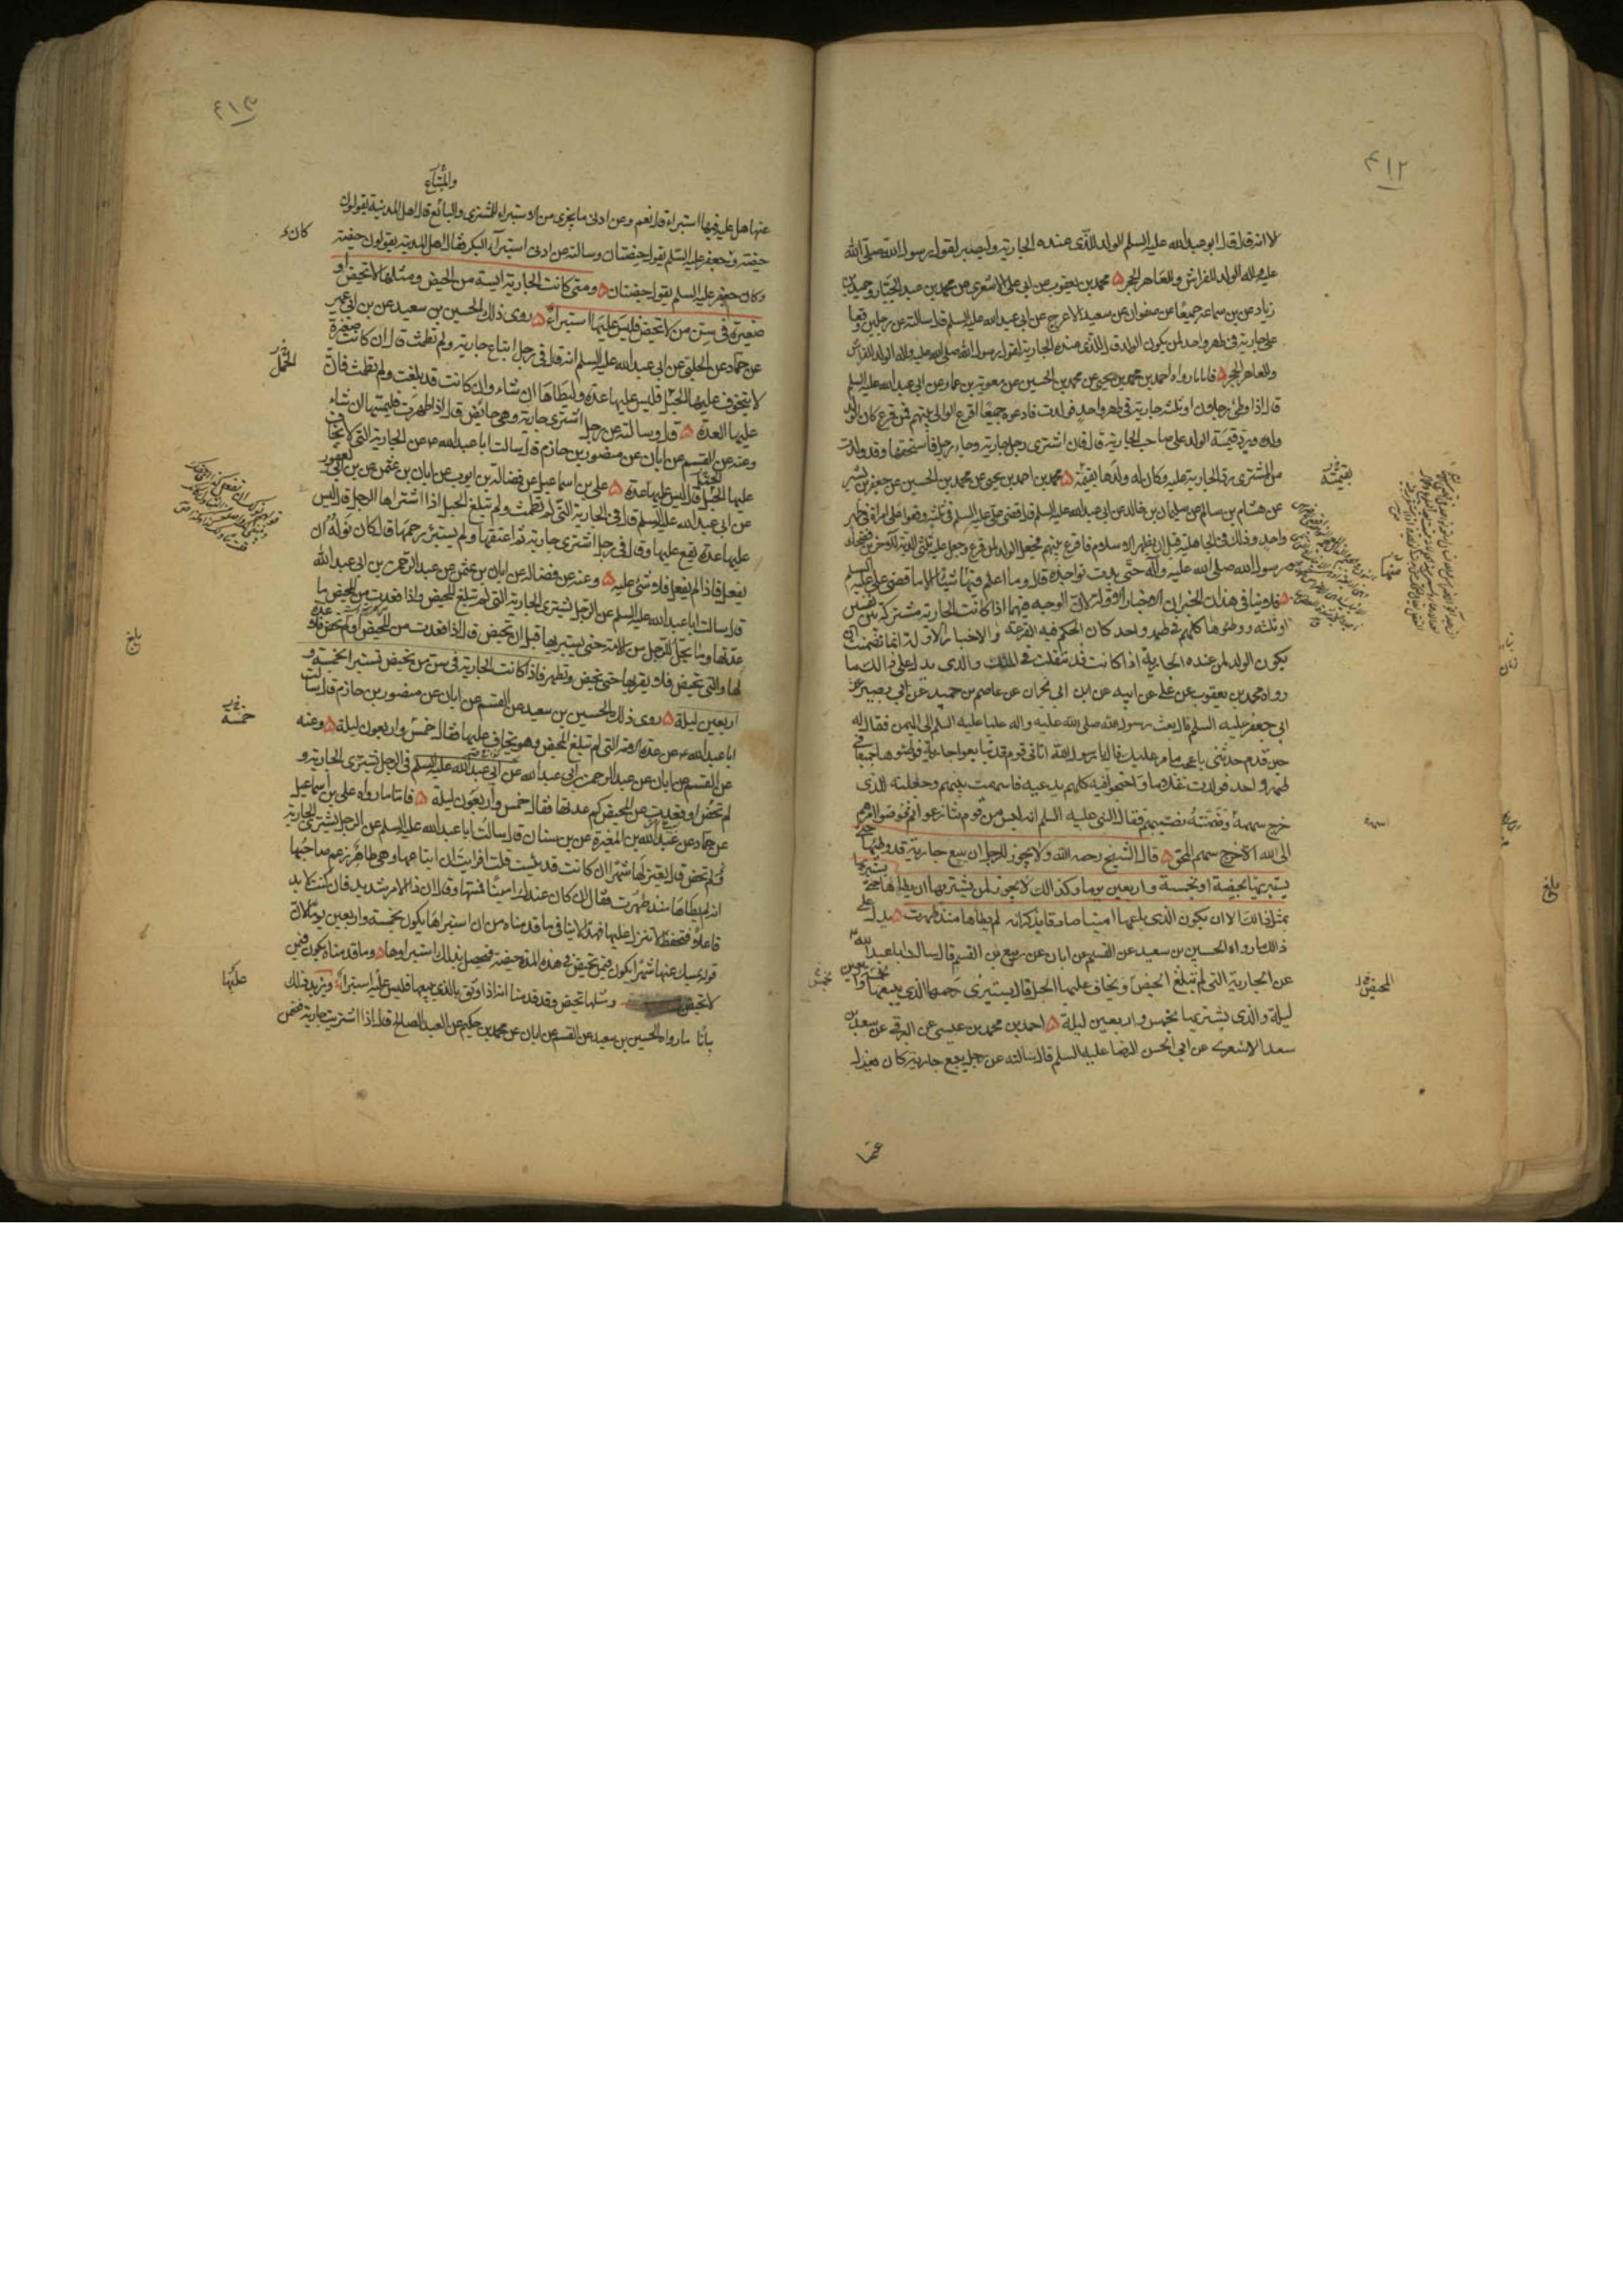 ٤١٢
لا انه قال قال ابو عبد الله عليه السلم الولد للذي عنده الجارية وليصبر لقول رسول الله صلى الله
عليه واله الولد للفراش وللعاهر الحجر محمد بن يعقوب عن ابي علي الاشعري عن محمد بن عبد الجبار وحميد بن
زياد عن بن سماعة جميعا عن صفوان عن سعيد الاعرج عن ابي عبد الله عليه السلم قال سالته عن رجلين وقعا
على جارية في طهر واحد لمن يكون الولد قال للذي عنده الجارية لقول رسول الله صلى الله عليه واله الولد للفراش
وللعاهر الحجر فاما ما رواه احمد بن محمد بن يحيى عن محمد بن الحسين عن معوية بن عمار عن ابي عبد الله عليه السلم
قال اذا وطئ رجلان او ثلثة جارية في طهر واحد فولدت فادعوه جميعا اقرع الوالي بينهم فمن قرع كان الولد
ولده ويرد قيمة الولد على صاحب الجارية قال فان اشترى رجل جارية وجاء رجل فاستحقها وقد ولدت
من المشترى رد الجارية عليه وكان له ولدها بقيمته محمد بن احمد بن يحيى عن محمد بن الحسين عن جعفر بن بشير
عن هشام بن سالم عن سليمان بن خالد عن ابي عبد الله عليه السلم قال قضى علي عليه السلم في ثلثة وقعوا على امراة في طهر
واحد وذلك في الجاهلية قبل ان يظهر الاسلام فاقرع بينهم فجعل الولد لمن قرع وجعل عليه ثلثي الدية للاخرين فضحك
رسول الله صلى الله عليه وآله حتى بدت نواجذه قال وما اعلم فيها شيئا الا ما قضى علي عليه السلم
فلا ينافي هذان الخبران الاخبار الاولة لان الوجه فيهما اذا كانت الجارية مشتركة بين نفسين
او ثلثة ووطئوها كلهم في طهر واحد كان الحكم فيه القرعة والاخبار الاولة انما تضمنت ان
يكون الولد لمن عنده الجارية اذا كانت قد نقلت في الملك والذي يدل على ذلك ما
رواه محمد بن يعقوب عن علي عن ابيه عن ابن ابي نجران عن عاصم بن حميد عن ابي بصير عن
ابي جعفر عليه السلم قال بعث رسول الله صلى الله عليه واله عليا عليه السلم الى اليمن فقال له
حين قدم حدثني باعجب ما مر عليك فقال يا رسول الله اتاني قوم قد تبايعوا جارية فوطئوها جميعا في
طهر واحد فولدت غلاما واحتجوا فيه كلهم يدعيه فاسهمت بينهم وجعلته للذي
خرج سهمه وضمنته نصيبهم فقال النبي عليه السلم انه ليس من قوم تنازعوا ثم فوضوا امرهم
الى الله الا خرج سهم المحق قال الشيخ رحمه الله ولا يجوز للرجل ان يبيع جارية قد وطئها حتى
يستبرئها بحيضة او بخمسة واربعين يوما وكذلك لا يجوز لمن يشتريها ان يطاها حتى يستبرئها
بمثل ذلك الا ان يكون الذي باعها امينا صادقا يذكر انه لم يطاها منذ طهرت يدل على
ذلك ما رواه الحسين بن سعيد عن القسم عن ابان عن ربيع بن القسم قال سالت ابا عبد الله
عن الجارية التي لم تبلغ الحيض ويخاف عليها الحبل قال يستبرئ رحمها الذي يبيعها بخمس واربعين
ليلة والذي يشتريها بخمس واربعين ليلة احمد بن محمد بن عيسى عن البرقي عن سعد بن
سعد الاشعري عن ابي الحسن الرضا عليه السلم قال سالته عن رجل يبيع جارية كان يعزل
بقيمته
المحيض
بلغ
٤١٣
والمبتاع
عنها هل عليه فيها استبراء قال نعم وعن ادنى ما يجزي من الاستبراء للمشتري والبائع قال اهل المدينة يقولون
حيضة وجعفر عليه السلم يقول حيضتان وسالته عن ادنى استبراء البكر فقال اهل المدينة يقولون حيضة
وكان جعفر عليه السلم يقول حيضتان ومتى كانت الجارية ايسة من الحيض ومثلها لا تحيض او
صغيرة في سن من لا تحيض فليس عليها استبراء روى ذلك الحسين بن سعيد عن بن ابي عمير
عن حماد عن الحلبي عن ابي عبد الله عليه السلم انه قال في رجل ابتاع جارية ولم تطمث قال ان كانت صغيرة
لا يتخوف عليها الحبل فليس عليها عدة وليطاها ان شاء وان كانت قد بلغت ولم تطمث فان
عليها العدة قال وسالته عن رجل اشترى جارية وهي حائض قال اذا طهرت فليمسها ان شاء
وعنه عن القسم عن ابان عن منصور بن حازم قال سالت ابا عبد الله عن الجارية التي لا يخاف
عليها الحبل قال ليس عليها عدة علي بن اسماعيل عن فضالة بن ايوب عن ابان بن عثمن عن بن ابي يعفور
عن ابي عبد الله عليه السلم قال في الجارية التي لم تطمث ولم تبلغ الحبل اذا اشتراها الرجل قال ليس
عليها عدة يقع عليها وقال في رجل اشترى جارية ثم اعتقها ولم يستبرئ رحمها قال كان نوله ان
يفعل فاذا لم يفعل فلا شئ عليه وعنه عن فضالة عن ابان بن عثمن عن عبد الرحمن بن ابي عبد الله
قال سالت ابا عبد الله عليه السلم عن الرجل يشتري الجارية التي لم تبلغ المحيض واذا قعدت من المحيض ما
عدتها وما يحل للرجل من الامة حتى يستبريها قبل ان تحيض قال اذا قعدت من المحيض او لم تحض فلا عدة
لها والتي تحيض فلا يقربها حتى تحيض وتطهر فاذا كانت الجارية في سن من تحيض تستبرا بخمسة و
اربعين ليلة روى ذلك الحسين بن سعيد عن القسم عن ابان عن منصور بن حازم قال سالت
ابا عبد الله عن عدة الامة التي لم تبلغ المحيض وهو يخاف عليها فقال خمس واربعون ليلة وعنه
عن القسم عن ابان عن عبد الرحمن بن ابي عبد الله عن ابي عبد الله عليه السلم في الرجل يشتري الجارية و
لم تحض او قعدت عن المحيض كم عدتها فقال خمس واربعون ليلة فاما ما رواه علي بن اسماعيل
عن حماد عن عبد الله بن المغيرة عن بن سنان قال سالت ابا عبد الله عليه السلم عن الرجل يشتري الجارية
ولم تحض قال يعتزلها شهرا ان كانت قد يئست قلت افرايت ان ابتاعها وهي طاهر زعم صاحبها
انه لم يطاها منذ طهرت فقال ان كان عندك امينا فمسها وقال ان ذا الامر شديد فان كنت لا بد
فاعلا فتحفظ لا تنزل عليها فهذا لا ينافي ما قدمناه من ان استبراءها يكون بخمسة واربعين يوما لان
قوله يمسك عنها شهرا يكون فيمن تحيض في هذه المدة حيضة فيحصل بذلك استبراوها وما قدمناه يكون فيمن
لا تحيض ومثلها تحيض وقد قدمنا انه اذا وثق بالذي يبيعها فليس عليه استبراء ويزيد ذلك
بيانا ما رواه الحسين بن سعيد عن القسم عن ابان عن محمد بن حكيم عن العبد الصالح قال اذا اشتريت جارية فضمن
الحمل
خمسة
بلغ